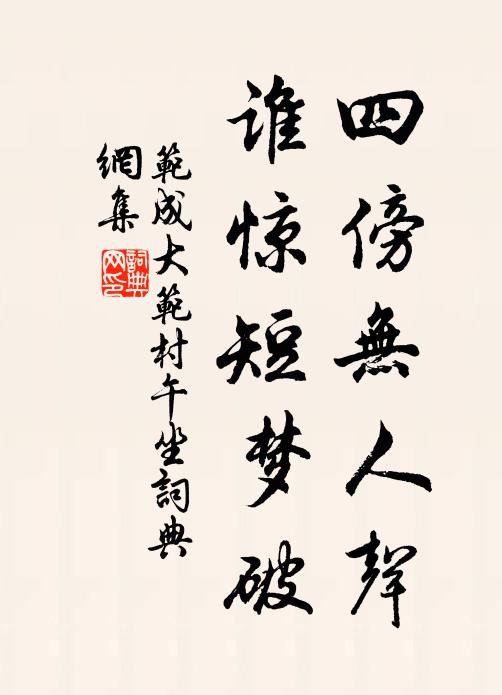 四傍無人聲
谁惊短梦破
範成大範村午坐詞典
網集
詞典
网印